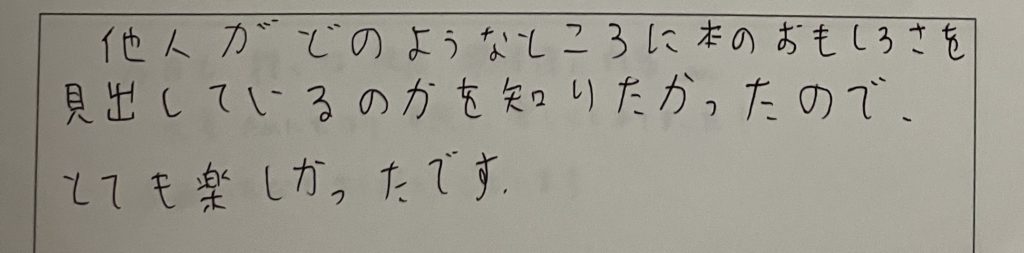 他人がどのようなところに本のおもしろさを
見出しているのかを知りたかったので、
とても楽しかったです。